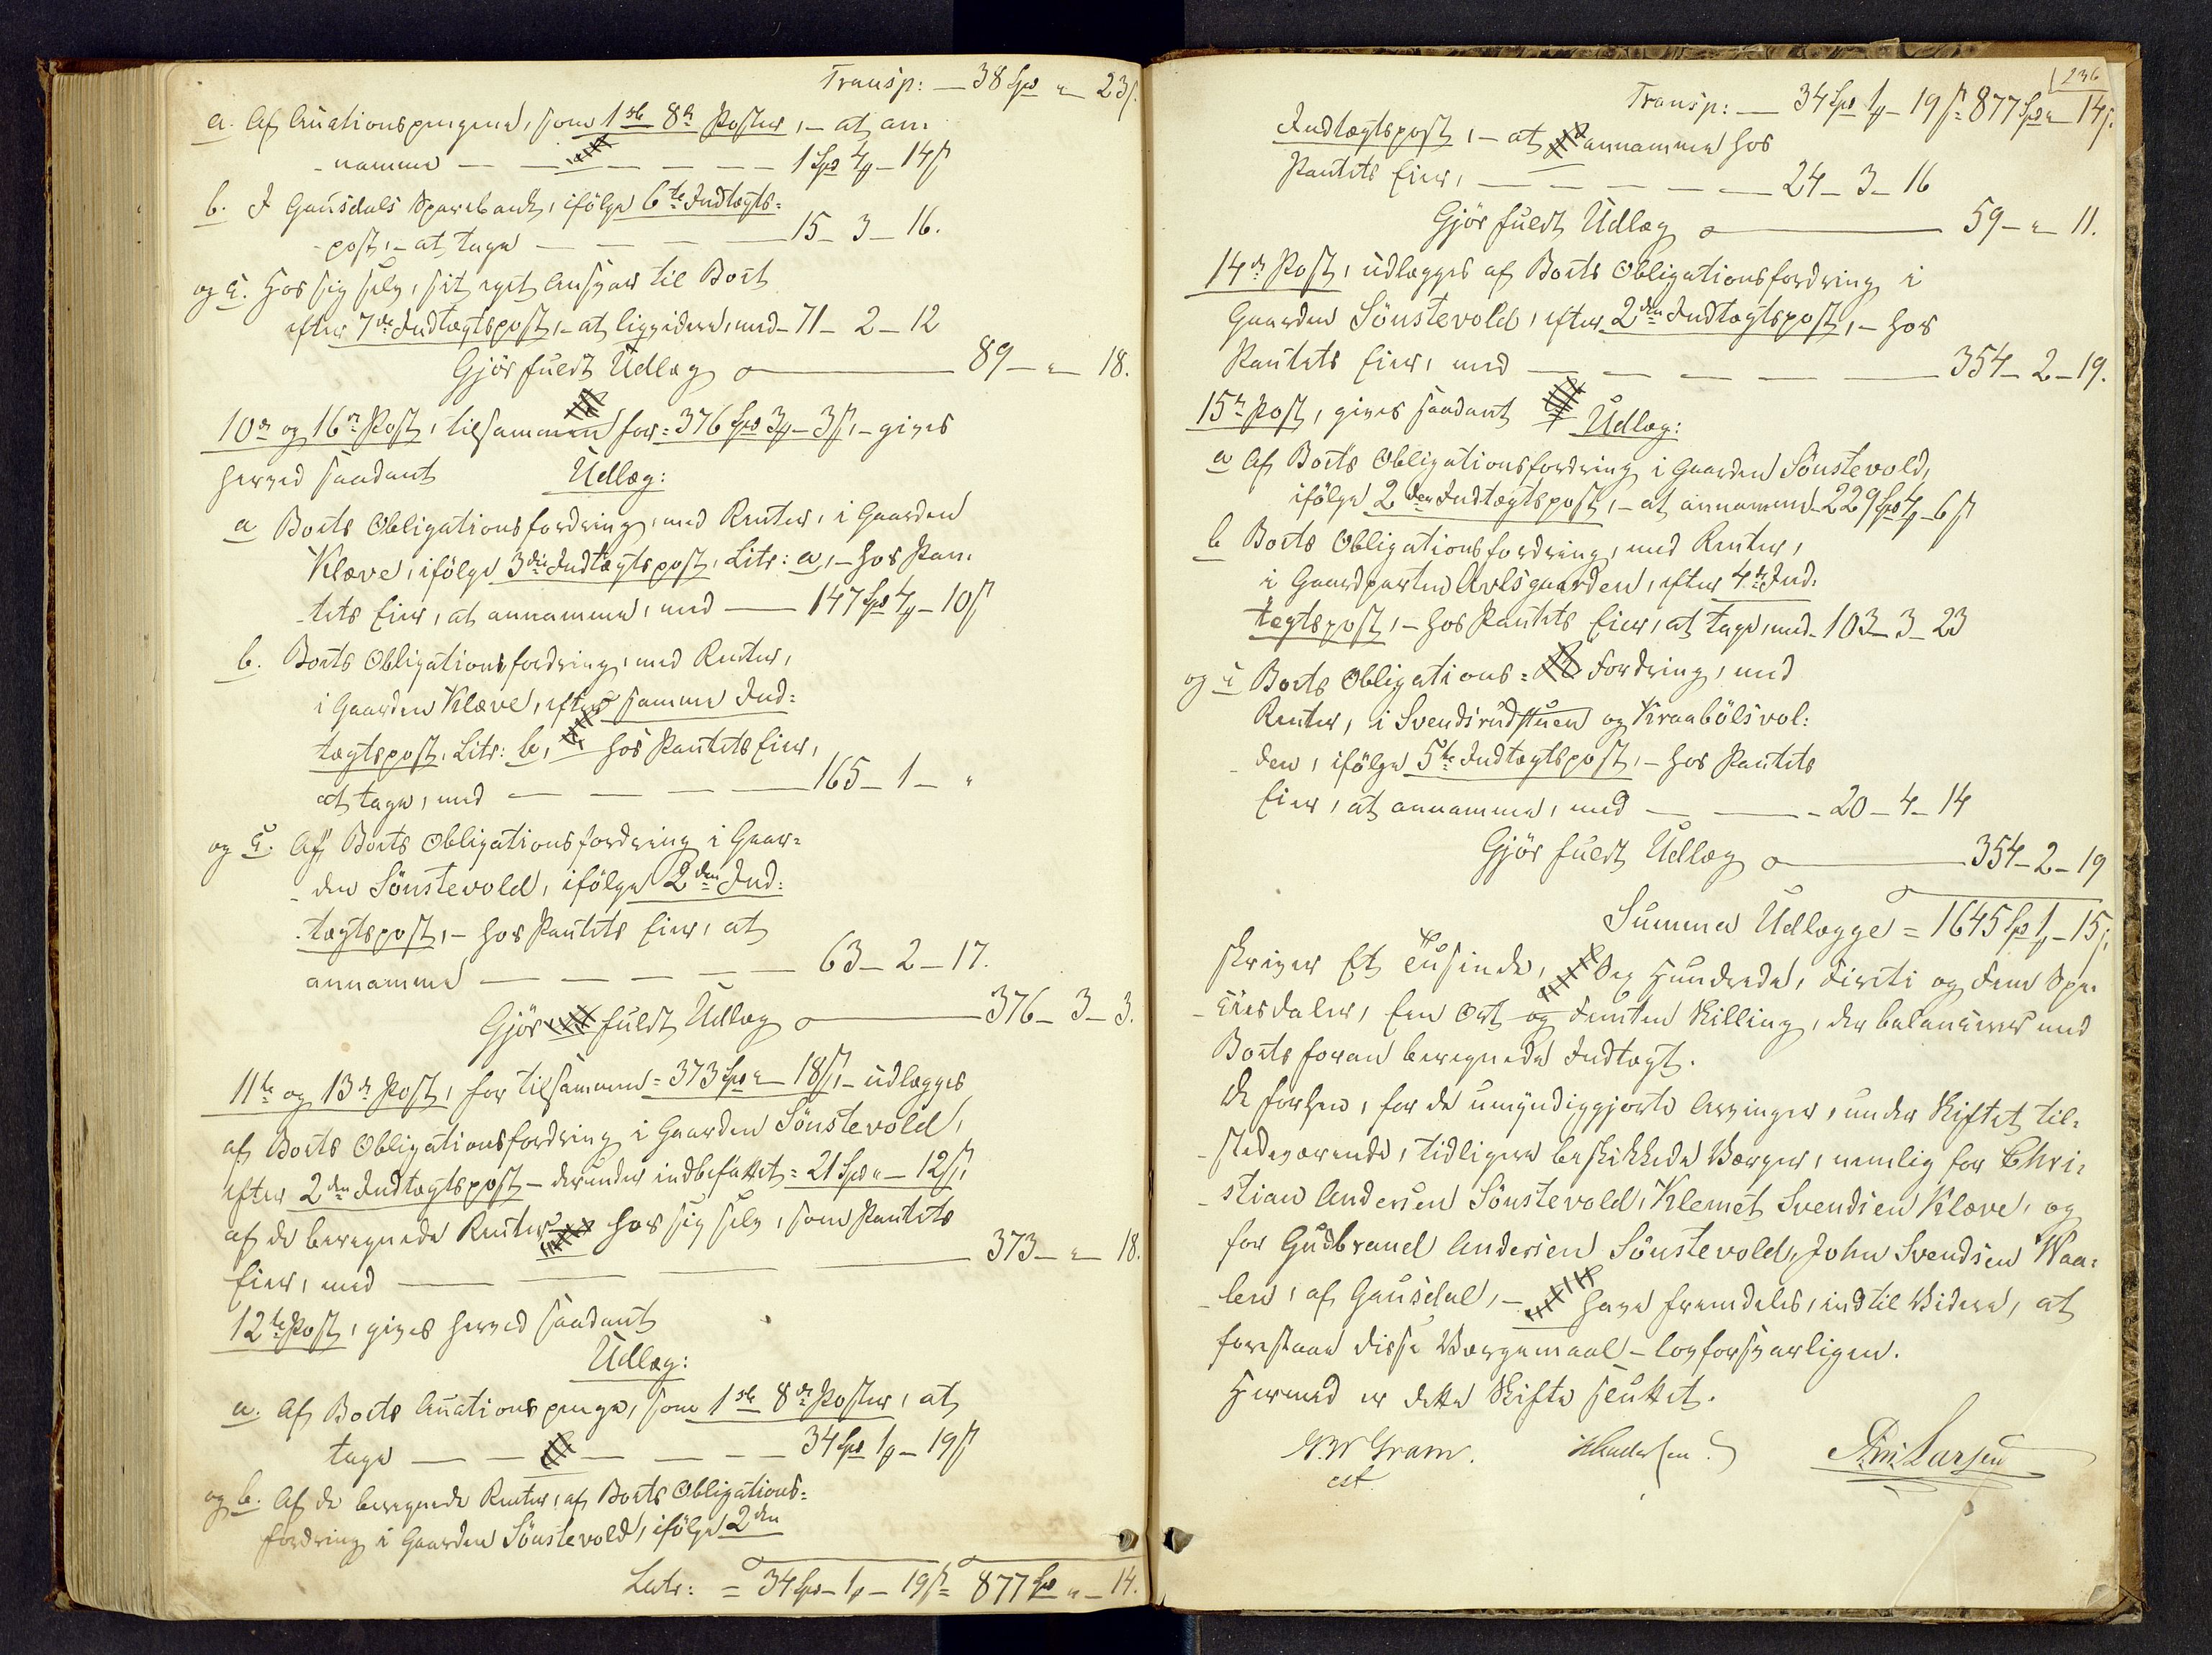 Transp: — 38 Spd " — 23 ſ.
a. Af Auctionspengene, som 1ste 8de Poster, – at an-
namme — — — — — — 1 Spd 4 – 14 ſ
b. I Gausdals Sparebank, ifölge 6te Indtægts-
post, – at tage — — — — 15 – 3 – 16.
og c. Hos sig selv, sit eget Ansvar til Boet
efter 7de Indtægtspost, – at liqvidere, med – 71 – 2 – 12
Gjör fuldt Udlæg — 89 – " – 18.
10de og 16de Post, tilsammen for = 376 Spd 3 – 3 ſ, – gives
herved saadant Udlæg:
a Boets Obligationsfordring, med Renter, i Gaarden
Klæve, ifölge 3die Indtægtspost, Litr: a, – hos Pan-
tets Eier, at annamme, med — 147 Spd 4 – 10 ſ
b. Boets Obligationsfordring, med Renter,
i Gaarden Klæve, efter samme Ind-
tægtspost, Litr: b, – hos Pantets Eier,
at tage, med — — — — 165 – 1 – "
og c. Af Boets Obligationsfordring i Gaar-
den Sönstevold, ifölge 2den Ind-
tægtspost, – hos Pantets Eier, at
annamme — — — — — 63 – 2 – 17.
Gjör fuldt Udlæg — 376 – 3 – 3.
11te og 13de Post, for tilsammen = 373 Spd " – 18 ſ, – udlægges
af Boets Obligationsfordring i Gaarden Sönstevold,
efter 2den Indtægtspost – derunder indbefattet = 21 Spd " – 12 ſ,
af de beregnede Renter hos sig selv, som Pantets
Eier, med — — — — 373 – " – 18.
12te Post, gives herved saadant
Udlæg:
a. Af Boets Auctionspenge, som 1ste 8de Poster, at
tage — — — — — 34 Spd 1 – 19 ſ
og b. Af de beregnede Renter, af Boets Obligations-
fordring i Gaarden Sönstevold, ifölge 2den
Latr: = 34 Spd – 1 – 19 ſ = 877 Spd " – 14.
236
Transp: — 34 Spd 1 – 19 ſ = 877 Spd " – 14 ſ.
Indtægtspost, – at annamme hos
Pantets Eier, — — — — — 24 – 3 – 16
Gjör fuldt Udlæg — 59 – " – 11.
14de Post, udlægges af Boets Obligationsfordring i
Gaarden Sönstevold, efter 2den Indtægtspost, – hos
Pantets Eier, med — — — — 354 – 2 – 19.
15de Post, gives saadant Udlæg:
a Af Boets Obligationsfordring i Gaarden Sönstevold,
ifölge 2den Indtægtspost, – at annamme – 229 Spd 4 – 6 ſ
b Boets Obligationsfordring, med Renter,
i Gaardparten Avlsgaarden, efter 4de Ind-
tægtspost, – hos Pantets Eier, at tage, med – 103 – 3 – 23
og c Boets Obligations- Fordring, med
Renter, i Svendsrudstuen og Kraabölsvol-
den, ifölge 5te Indtægtspost, – hos Pantets
Eier, at annamme, med — — 20 – 4 – 14
Gjör fuldt Udlæg — 354 – 2 – 19
Summa Udlægge = 1645 Sp 1 – 15 ſ.
skriver Et Tusinde, Sex Hundrede, Firti og Fem Spe-
ciesdaler, Een Ort og Femten Skilling, der balancerer med
Boets foran beregnede Indtægt.
De forhen, for de umyndiggjorte Arvinger, under Skiftet til-
stedeværende, tidligere beskikkede Værger, nemlig for Chri-
stian Andersen Sönstevold, Klemet Svendsen Klæve, og
for Gudbrand Andersen Sönstevold, John Svendsen Waa-
len, af Gausdal, – have fremdeles, indtil Videre, at
forestaae disse Værgemaal – lovforsvarligen.
Hermed er dette Skifte sluttet.
Gram. Andersen Larsen
cst.